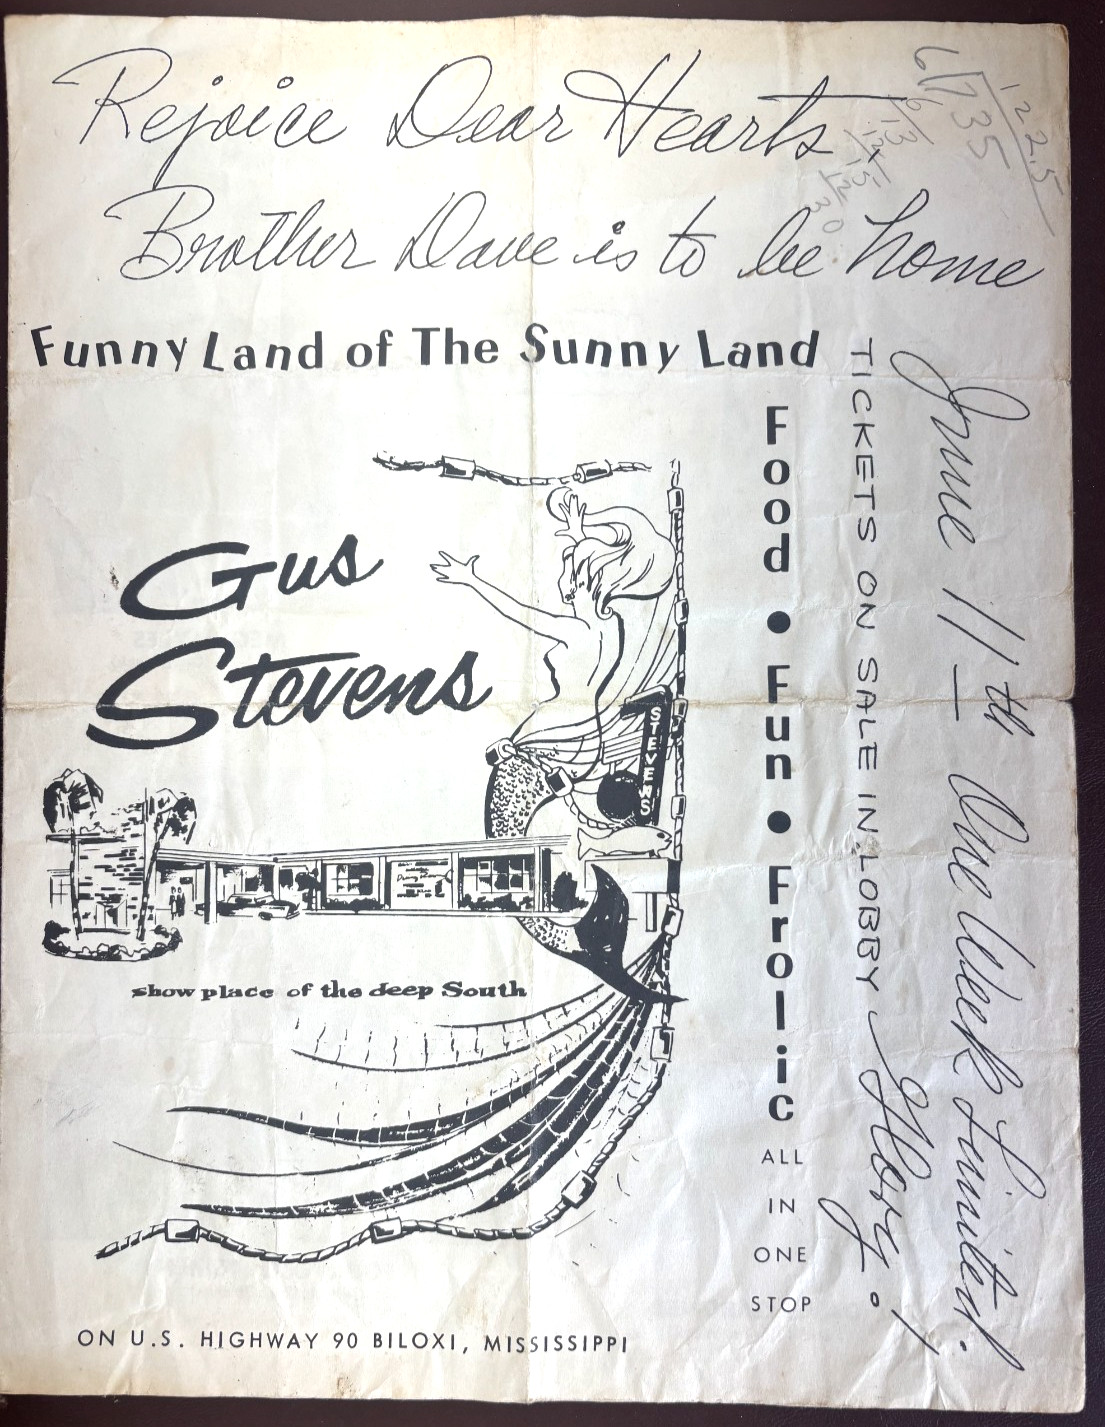 Rejoice Dear Hearts,
Brother Dave is to be home
Funny Land of The Sunny Land
Gus
Stevens
STEVENS
show place of the deep South
ON U.S. HIGHWAY 90 BILOXI, MISSISSIPPI
Food • Fun • Frolic
ALL
IN
ONE
STOP
TICKETS ON SALE IN LOBBY Glory!
June 11th One Week Limited.
122.5
6/735